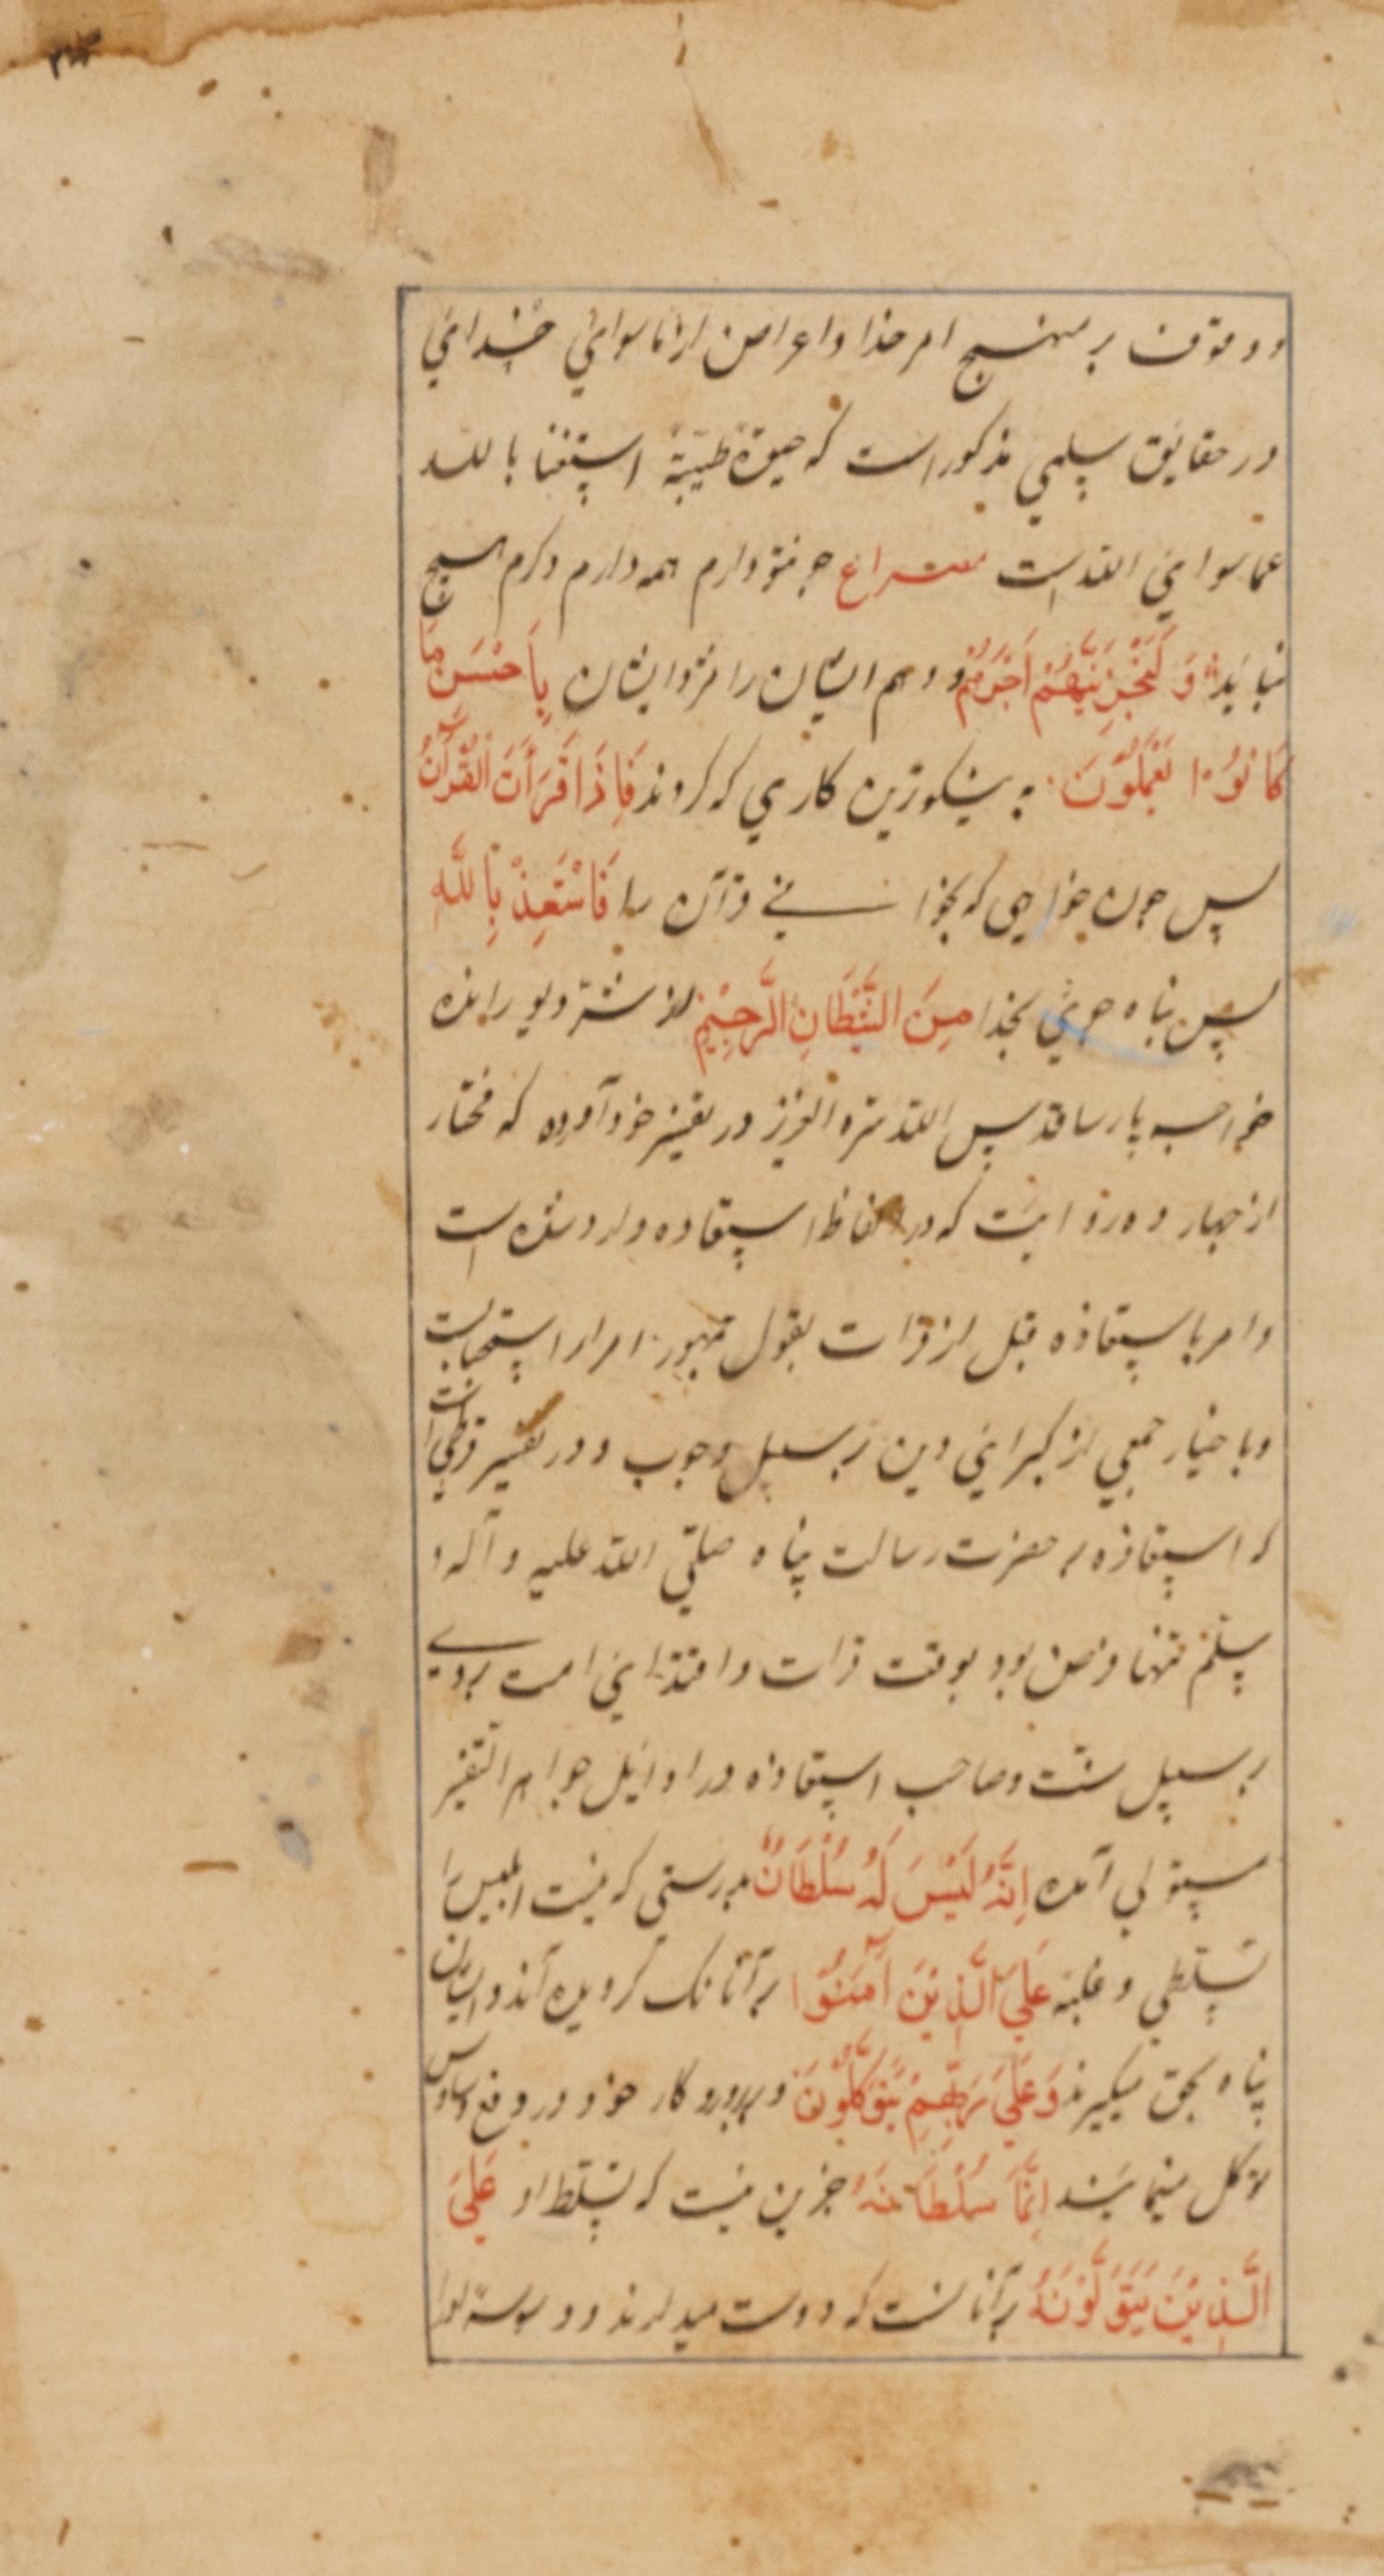 و وقوف بر منهج امر خدا و اعراض از ماسوای خدای
در حقایق سلمی مذکور است که حیوة طیبة استغنا بالله
عماسوای الله است مصراع چو تو دارم همه دارم دگرم هیچ
نباید وَلَنَجْزِيَنَّهُمْ أَجْرَهُمْ و دهم ایشان را مزد ایشان بِأَحْسَنِ مَا
كَانُوا يَعْمَلُونَ به نیکوترین کاری که کردند فَإِذَا قَرَأْتَ الْقُرْآنَ
پس چون خواهی که بخوانی قرآن را فَاسْتَعِذْ بِاللَّهِ
پس پناه جوی بخدا مِنَ الشَّيْطَانِ الرَّجِيمِ از شر دیو رانده
خواجه پارسا قدس الله سره العزیز در تفسیر خود آورده که مختار
از چهارده روایت که در الفاظ استعاذه وارد شده است
و امر باستعاذه قبل از قرات بقول جمهور امر استحبابست
و باختیار جمعی از کبرای دین بر سبیل وجوب و در تفسیر قرطبی است
که استعاذه بر حضرت رسالت پناه صلی الله علیه و آله و
سلم تنها فرض بود بوقت قرات و اقتدای امت بروی
بر سبیل سنت و مباحث استعاذه در اوایل جواهر التفسیر
مستوفی آمده إِنَّهُ لَيْسَ لَهُ سُلْطَانٌ بدرستی که نیست ابلیس را
تسلطی و غلبه عَلَى الَّذِينَ آمَنُوا بر آنانک گرویده اند و ایشان
پناه بحق میگیرند وَعَلَى رَبِّهِمْ يَتَوَكَّلُونَ و بر پروردگار خود در دفع وساوس
توکل مینمایند إِنَّمَا سُلْطَانُهُ جزین نیست که تسلط او عَلَى
الَّذِينَ يَتَوَلَّوْنَهُ بر آنانست که دوست میدارند و وسوسه او را